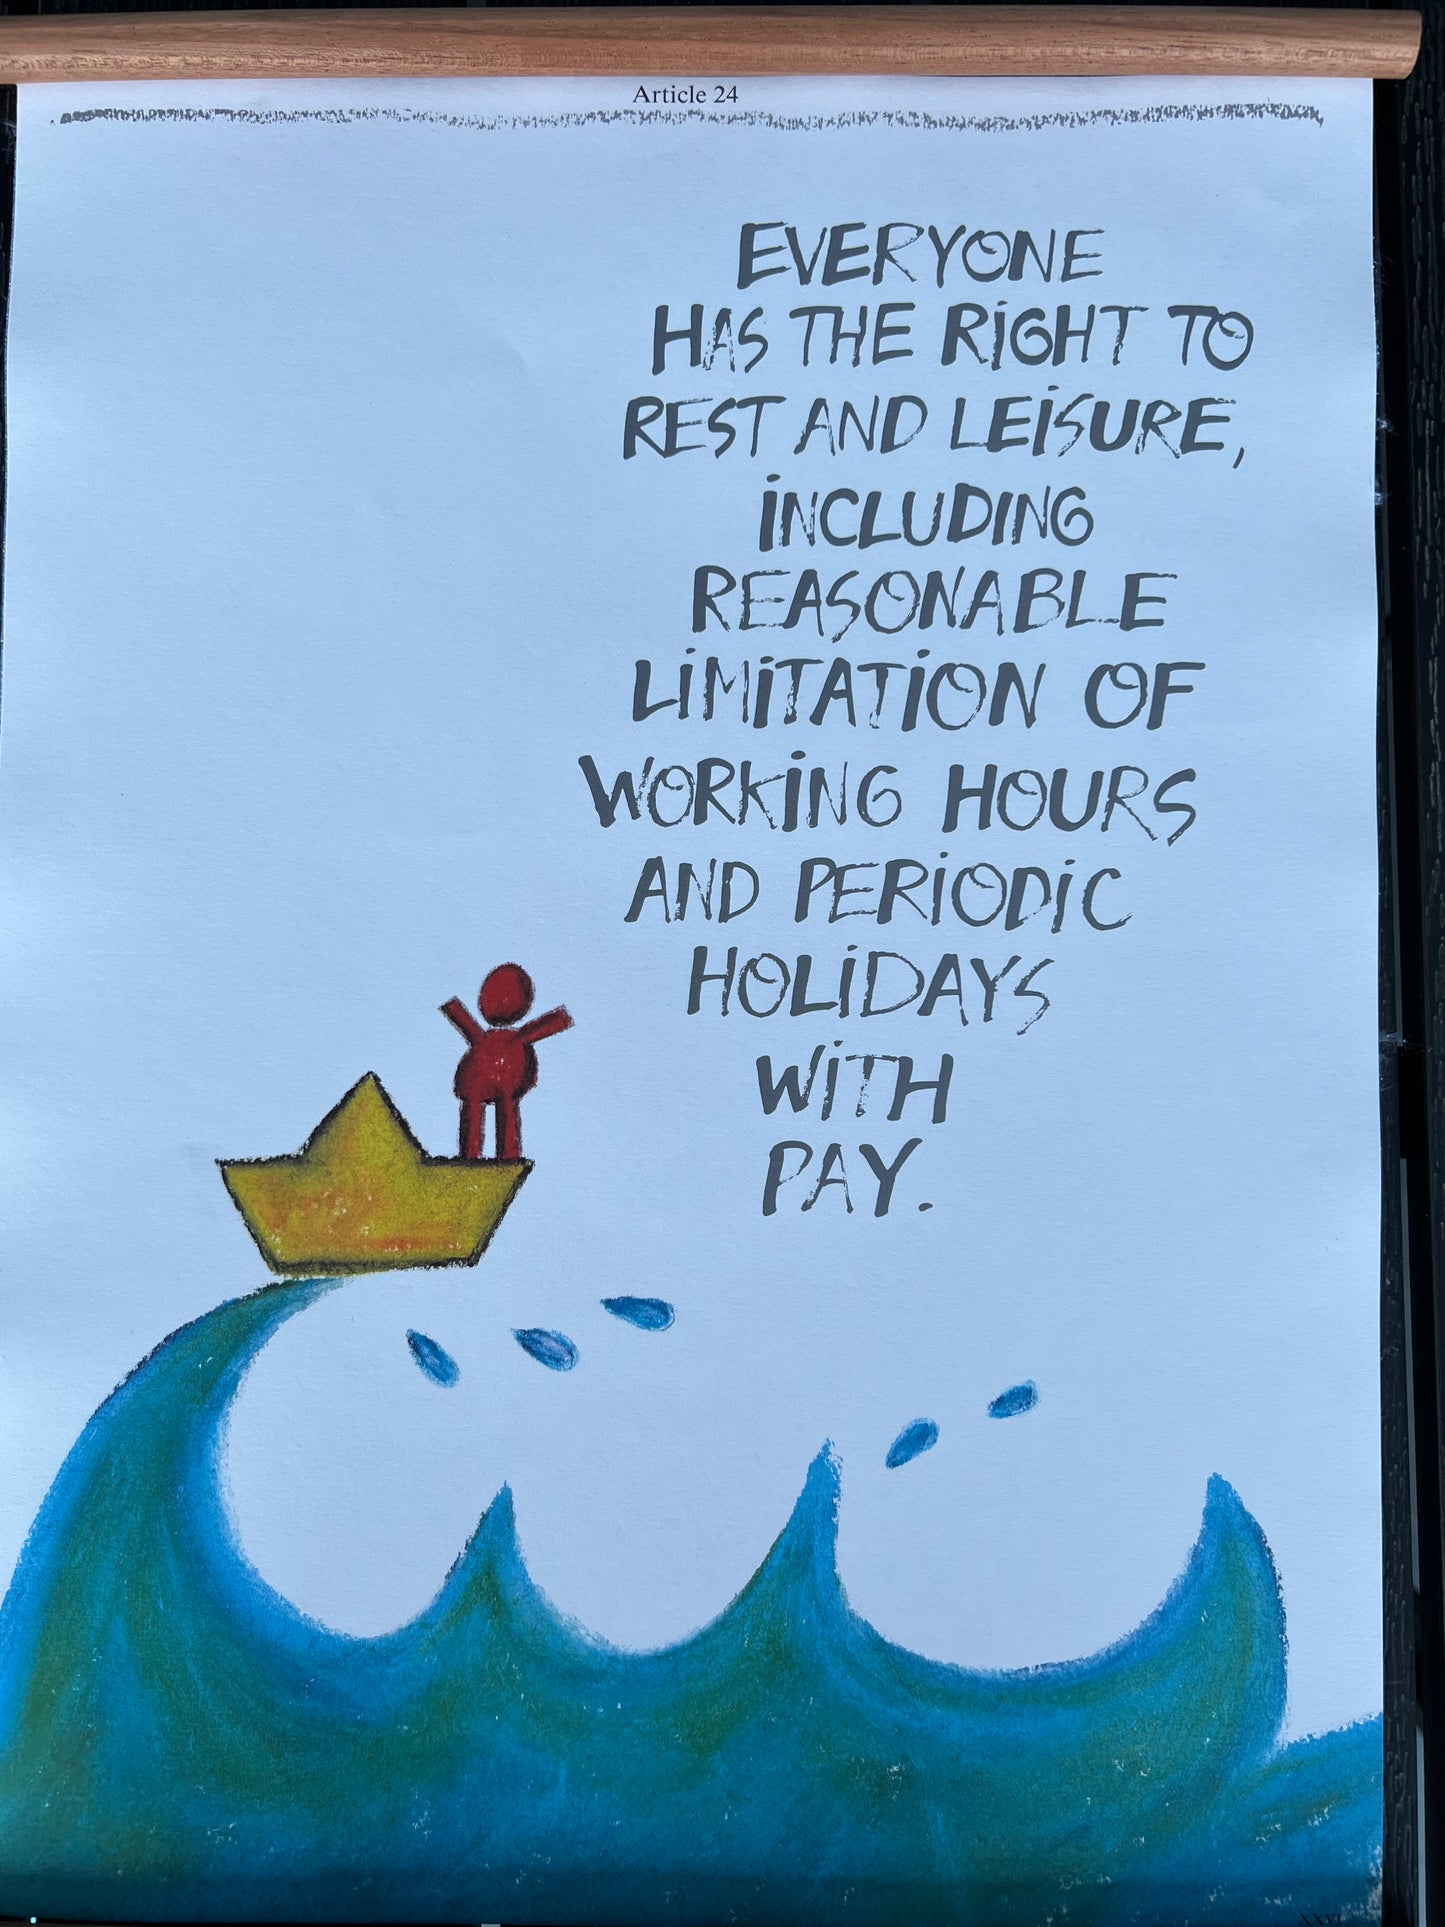 Article 24
EVERYONE
HAS THE RiGHT TO
REST AND LEiSURE,
iNCLUDING
REASONABLE
LiMiTATiON OF
WORKiNG HOURS
AND PERiODiC
HOLiDAYS
WiTH
PAY.